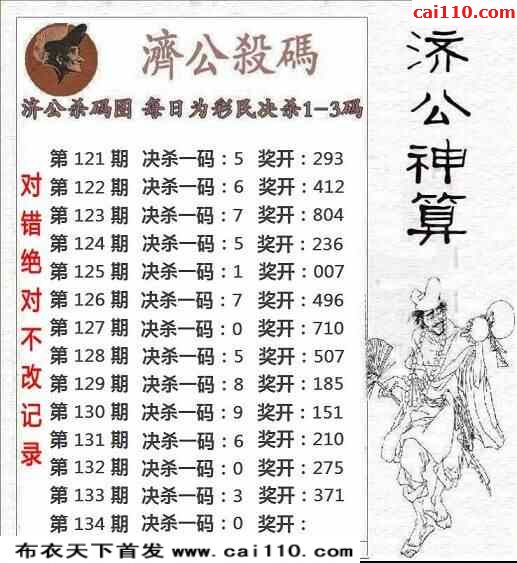 cai110.com
濟公殺碼
济公杀码图 每日为彩民决杀1-3码
济公神算
对错绝对不改记录
第 121 期 决杀一码：5 奖开：293
第 122 期 决杀一码：6 奖开：412
第 123 期 决杀一码：7 奖开：804
第 124 期 决杀一码：5 奖开：236
第 125 期 决杀一码：1 奖开：007
第 126 期 决杀一码：7 奖开：496
第 127 期 决杀一码：0 奖开：710
第 128 期 决杀一码：5 奖开：507
第 129 期 决杀一码：8 奖开：185
第 130 期 决杀一码：9 奖开：151
第 131 期 决杀一码：6 奖开：210
第 132 期 决杀一码：0 奖开：275
第 133 期 决杀一码：3 奖开：371
第 134 期 决杀一码：0 奖开：
布衣天下首发 www.cai110.com